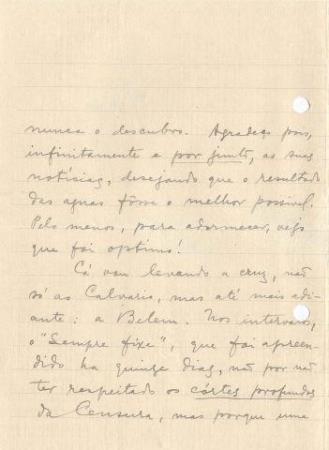 nunca o descubro. Agradeço pois,
infinitamente e por junto, as suas
notícias, desejando que o resultado
das aguas fôsse o melhor possivel.
Pelo menos, para adormecer, vejo
que foi optimo!
Cá vou levando a cruz, não
só ao Calvario, mas até mais adi-
ante: a Belem. Nos intervalos,
o "Sempre fixe", que foi apreen-
dido ha quinze dias, não por não
ter respeitado os córtes profundos
da Censura, mas porque uma